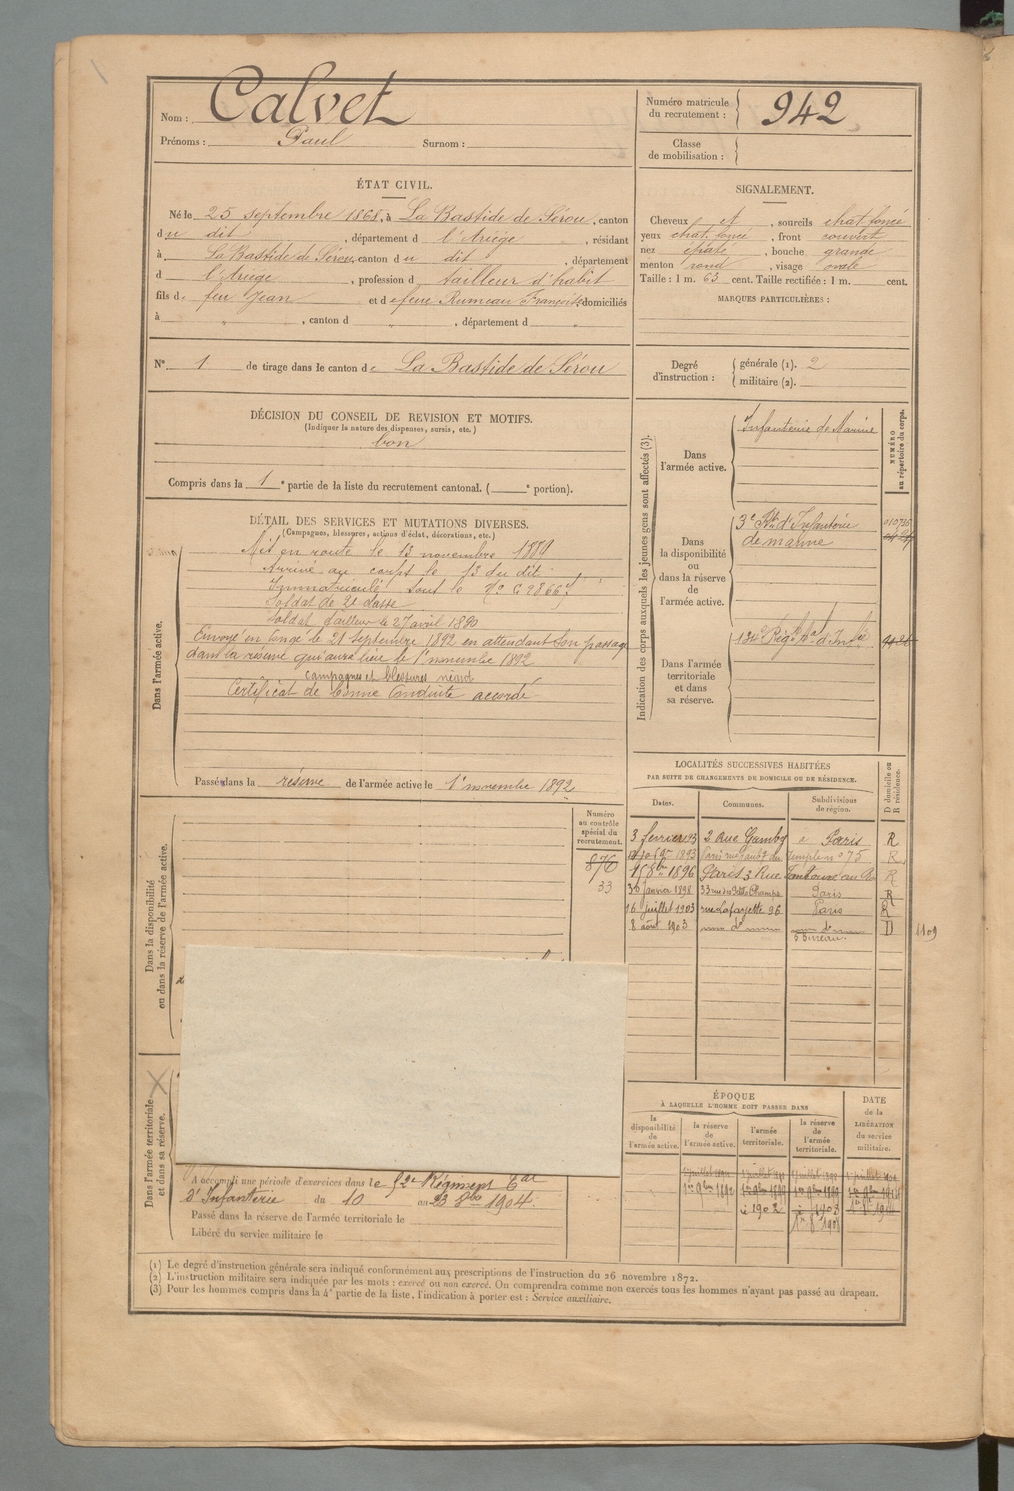 Nom : Calvet
Prénoms : Paul Surnom :
Numéro matricule du recrutement : 942
Classe de mobilisation :
ÉTAT CIVIL.
Né le 25 septembre 1868, à La Bastide de Sérou, canton
du dit, département d l'Ariège, résidant
à La Bastide de Sérou, canton du dit, département
d l'Ariège, profession d tailleur d'habit
fils de feu Jean et de feue Rumeau Françoise, domiciliés
à " , canton d " , département d "
SIGNALEMENT.
Cheveux et , sourcils chat. foncé
yeux chat. foncé , front couvert
nez épaté , bouche grande
menton rond , visage ovale
Taille : 1 m. 63 cent. Taille rectifiée : 1 m. cent.
MARQUES PARTICULIÈRES :
N° 1 de tirage dans le canton de La Bastide de Sérou
Degré d'instruction : générale (1). 2
militaire (2).
DÉCISION DU CONSEIL DE REVISION ET MOTIFS.
(Indiquer la nature des dispenses, sursis, etc.)
bon
Compris dans la 1e partie de la liste du recrutement cantonal. ( e portion).
DÉTAIL DES SERVICES ET MUTATIONS DIVERSES.
(Campagnes, blessures, actions d'éclat, décorations, etc.)
Dans l'armée active.
Mis en route le 13 novembre 1889
Arrivé au corps le 13 du dit
Immatriculé sous le N°
Soldat de 2e classe
Soldat tailleur le 27 avril 1890
Envoyé en congé le 21 septembre 1892 en attendant son passage
dans la réserve qui aura lieu le 1er novembre 1892
campagnes et blessures néant
Certificat de bonne conduite accordé
Passé dans la réserve de l'armée active le 1er novembre 1892
Indication des corps auxquels les jeunes gens sont affectés (3).
NUMÉRO au répertoire du corps.
Dans l'armée active.
Infanterie de Marine
Dans la disponibilité ou dans la réserve de l'armée active.
3e Rt d'Infanterie
de marine
Dans l'armée territoriale et dans sa réserve.
134e Régt d'Infie
LOCALITÉS SUCCESSIVES HABITÉES
PAR SUITE DE CHANGEMENTS DE DOMICILE OU DE RÉSIDENCE.
Dates. Communes. Subdivisions de région. D domicile ou R résidence.
3 février 93 2 Rue Paris R
1893 Paris temple n° 75 R
1896 Paris 3 Rue R
30 janvier 1898 33 rue des Petits Champs Paris R
16 juillet 1903 rue Lafayette 96 Paris R
8 août 1903 d° d° D
1109
Dans la disponibilité ou dans la réserve de l'armée active.
Numéro au contrôle spécial du recrutement.
876
33
Dans l'armée territoriale et dans sa réserve.
A accompli une période d'exercices dans le Régiment
d'Infanterie du 10 au 23 8bre 1904.
Passé dans la réserve de l'armée territoriale le
Libéré du service militaire le
ÉPOQUE
À LAQUELLE L'HOMME DOIT PASSER DANS
la disponibilité de l'armée active.
la réserve de l'armée active.
l'armée territoriale.
la réserve de l'armée territoriale.
DATE de la LIBÉRATION du service militaire.
(1) Le degré d'instruction générale sera indiqué conformément aux prescriptions de l'instruction du 26 novembre 1872.
(2) L'instruction militaire sera indiquée par les mots : exercé ou non exercé. On comprendra comme non exercés tous les hommes n'ayant pas passé au drapeau.
(3) Pour les hommes compris dans la 4e partie de la liste, l'indication à porter est : Service auxiliaire.